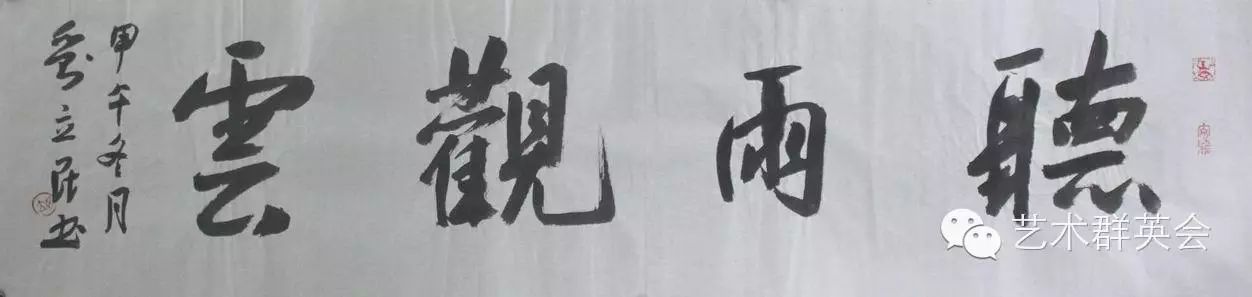 聽雨觀雲
甲午冬月
立民书
艺术群英会